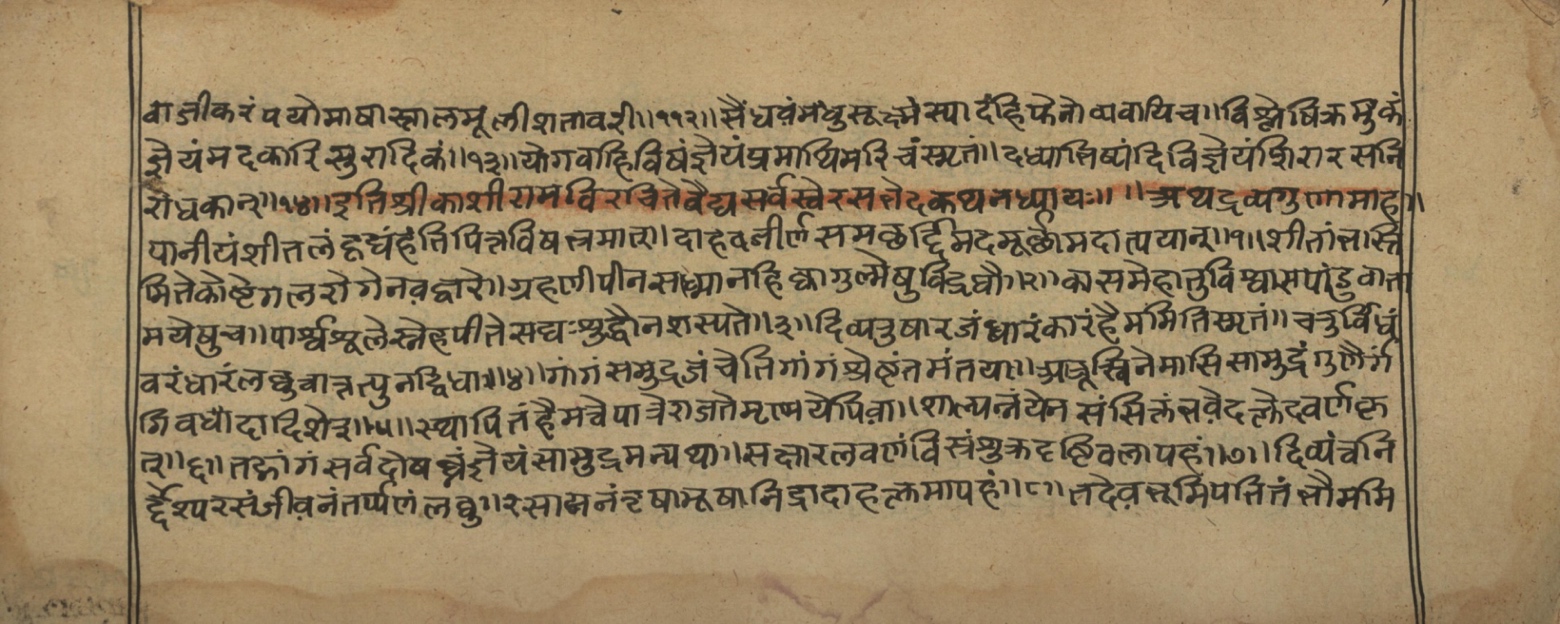 वाजीकरं पयोमाषास्तालमूलीशतावरी॥११२॥सैंधवंमधुसूक्ष्मंस्यादंहिफेनोव्यवायिच॥विश्लेषिक्रमुकं
ज्ञेयंमदकारिसुरादिकं॥१३॥योगवाहिविषंज्ञेयंप्रमाथिमरिचंस्मृतं॥दध्यात्तिष्यंदिविज्ञेयंशिरारसनि
रोधकान्॥१४॥इतिश्रीकाशीरामविरचितेवैद्यसर्वस्वेरसभेदकथनध्यायः॥ ॥अथद्रव्यगुणामाह॥
पानीयंशीतलंहृद्यंहंतिपित्तविषभ्रमान्॥दाहवजीर्णसमछर्द्दिमदमूर्छामदात्पयान्॥१॥शीतांभस्ति
मितेकोष्टेगलरोगेनवद्वारे॥ग्रहणीपीनसाध्मानहिक्कागुल्मेषुविद्रधौ॥२॥कासमेहारुविश्वासपांडुवाता
मयेषुच॥पार्श्वशूलेस्नेहपीतेसद्यःशुद्धौनशस्यते॥३॥दिव्यतुषारजंधारंकारंहैममितिस्मृतं॥चतुर्विधं
वरंधारंलघुवात्तत्पुनर्द्विधा॥४॥गांगंसमुद्रजंचेतिगांगंश्रेष्ठंतमंतया॥आश्विनेमासिसामुद्रंगुणैर्गां
गिवधौदादिशेत्॥५॥स्थापितंहैमजेपात्रेराजतेमृण्मयेपिवा॥शाल्यन्नंयेन संसिक्तंभवेदक्लेदवर्णकृ
त्॥६॥तद्गांगंसर्वदोषघ्नंज्ञेयंसामुद्रमन्यथा॥सक्षारलवणंविस्रंशुक्रदृष्टिबलापहं॥७॥दिव्यंचनि
र्द्देश्यरसंजीवनंतर्प्पणंलघु॥रसायनंतृषामूर्षानिद्रादाहक्लमापहं॥८॥तदेवभूमिपतितंभौममि